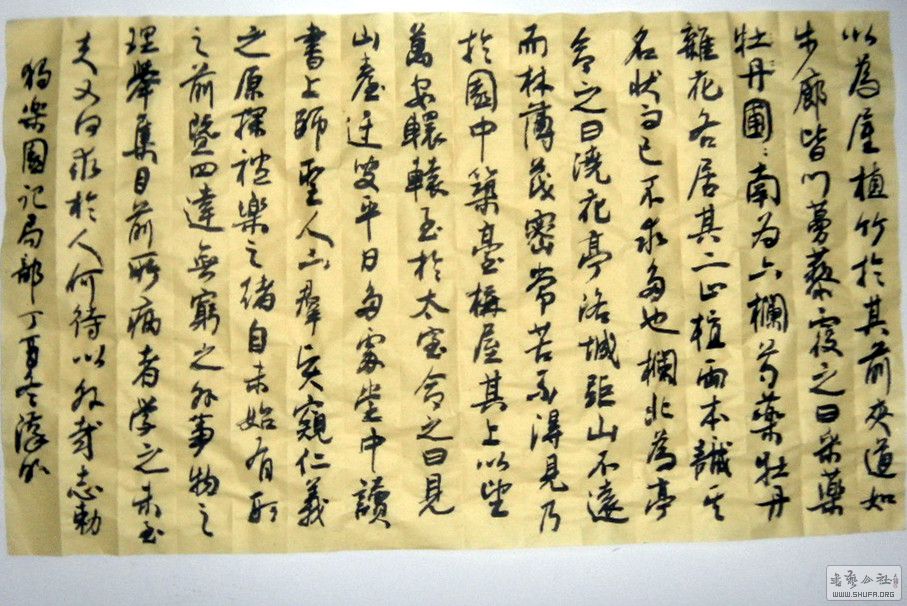 以為屋植竹於其前夾道如
步廊皆以蔓藥覆之曰采藥
牡丹圃:南为六欄芍藥牡丹
雜花各居其二止植兩本識其
名状而已不求多也欄北為亭
命之曰澆花亭洛城距山不遠
而林薄茂密常苦不得見乃
於園中築臺構屋其上以望
萬安轘轅至於太室命之曰見
山臺迂叟平日多處堂中讀
書上師聖人下群賢窺仁義
之原探禮樂之緒自未始有形
之前暨四達無窮之外事物之
理舉集目前所病者學之未至
夫又何求於人何待以外哉志勌
獨樂園記局部丁酉冬
WWW.SHUFA.ORG